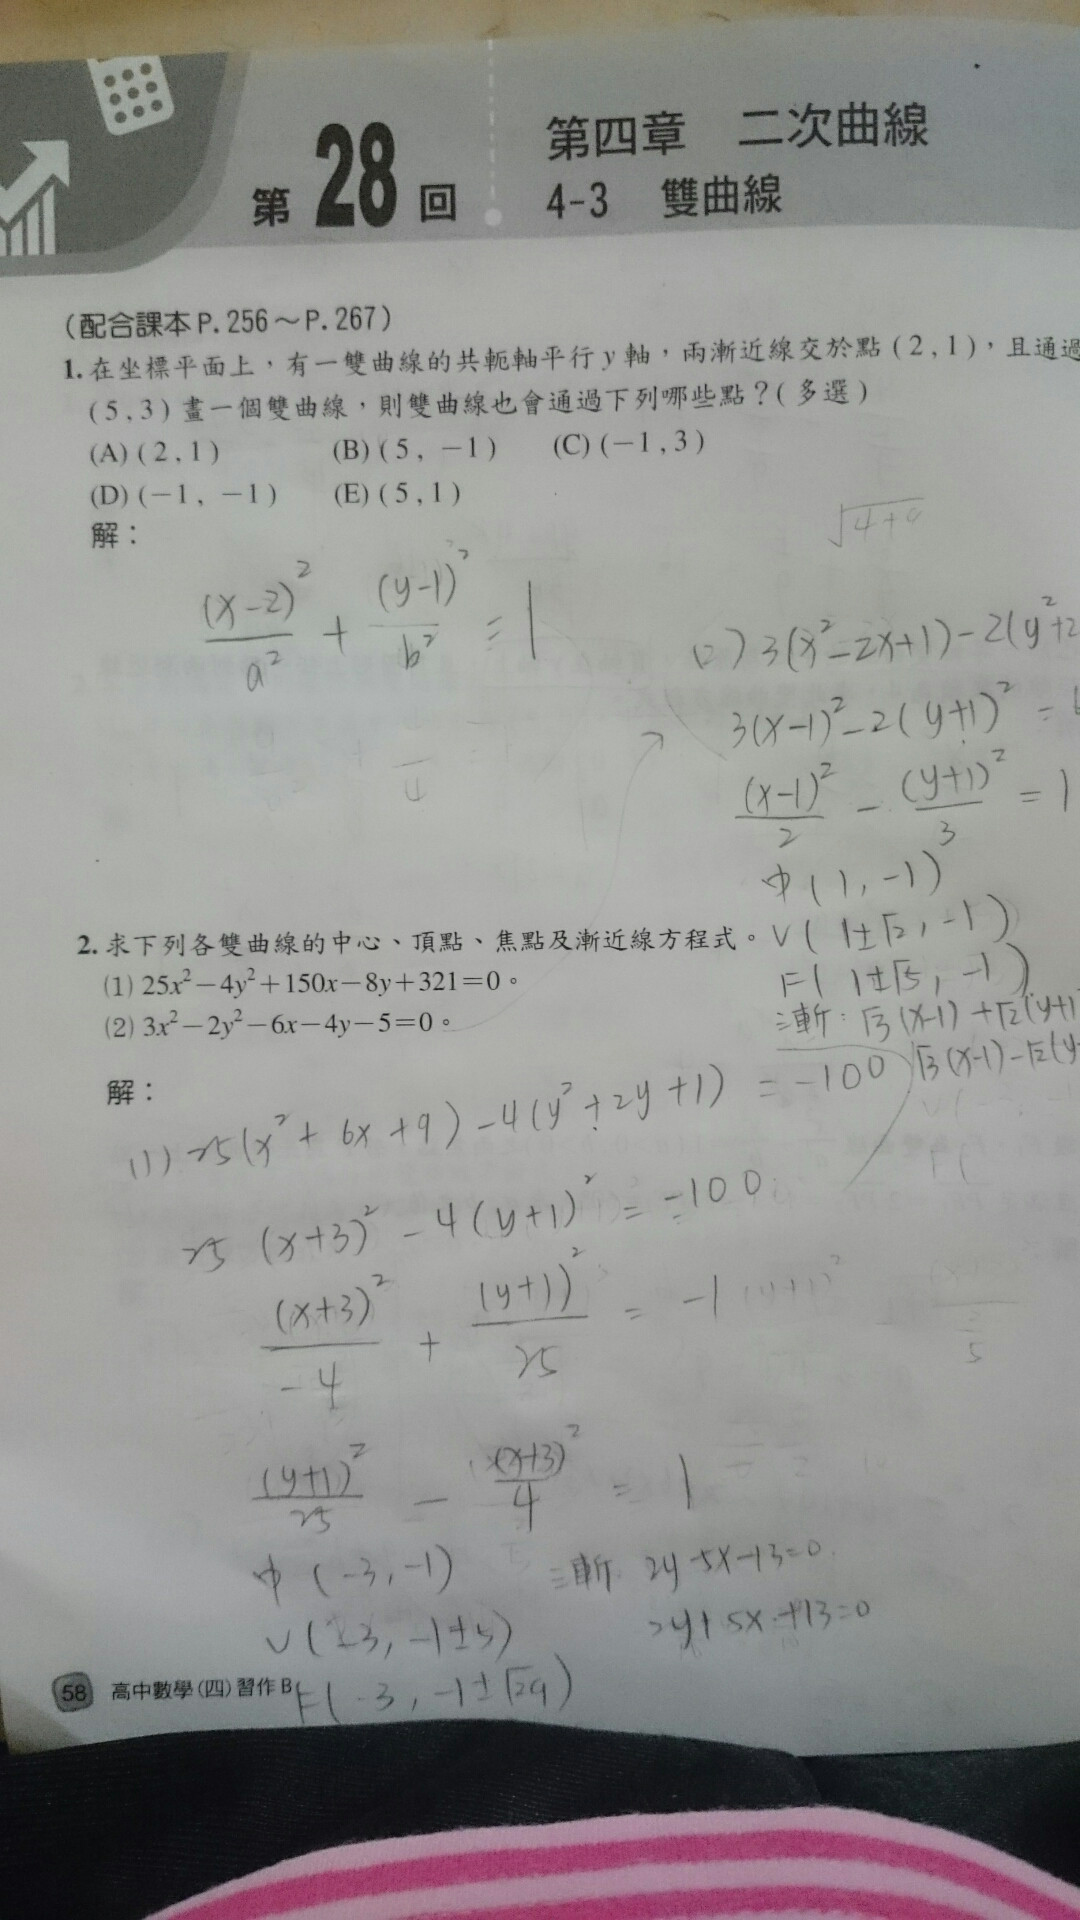 第28回
第四章 二次曲線
4-3 雙曲線
(配合課本P.256～P.267)
1.在坐標平面上，有一雙曲線的共軛軸平行y軸，兩漸近線交於點(2,1)，且通過
(5,3)畫一個雙曲線，則雙曲線也會通過下列哪些點？(多選)
(A)(2,1) (B)(5,－1) (C)(－1,3)
(D)(－1,－1) (E)(5,1)
解：
√4+9
(x-2)²/a² + (y-1)²/b² = 1
(2) 3(x²-2x+1)-2(y²+2
3(x-1)²-2(y+1)² = 6
(x-1)²/2 - (y+1)²/3 = 1
中(1,-1)
V(1±√2,-1)
F(1±√5,-1)
漸:√3(x-1)+√2(y+1)
√3(x-1)-√2(y-
2.求下列各雙曲線的中心、頂點、焦點及漸近線方程式。
(1) 25x²－4y²＋150x－8y＋321＝0。
(2) 3x²－2y²－6x－4y－5＝0。
解：
(1) 25(x²+6x+9)-4(y²+2y+1) = -100
25(x+3)²-4(y+1)² = -100
(x+3)²/-4 + (y+1)²/25 = -1
(y+1)²/25 - (x+3)²/4 = 1
中(-3,-1)
漸 2y-5x-13=0
V(-3,-1±5)
2y+5x+13=0
F(-3,-1±√29)
58 高中數學(四)習作B